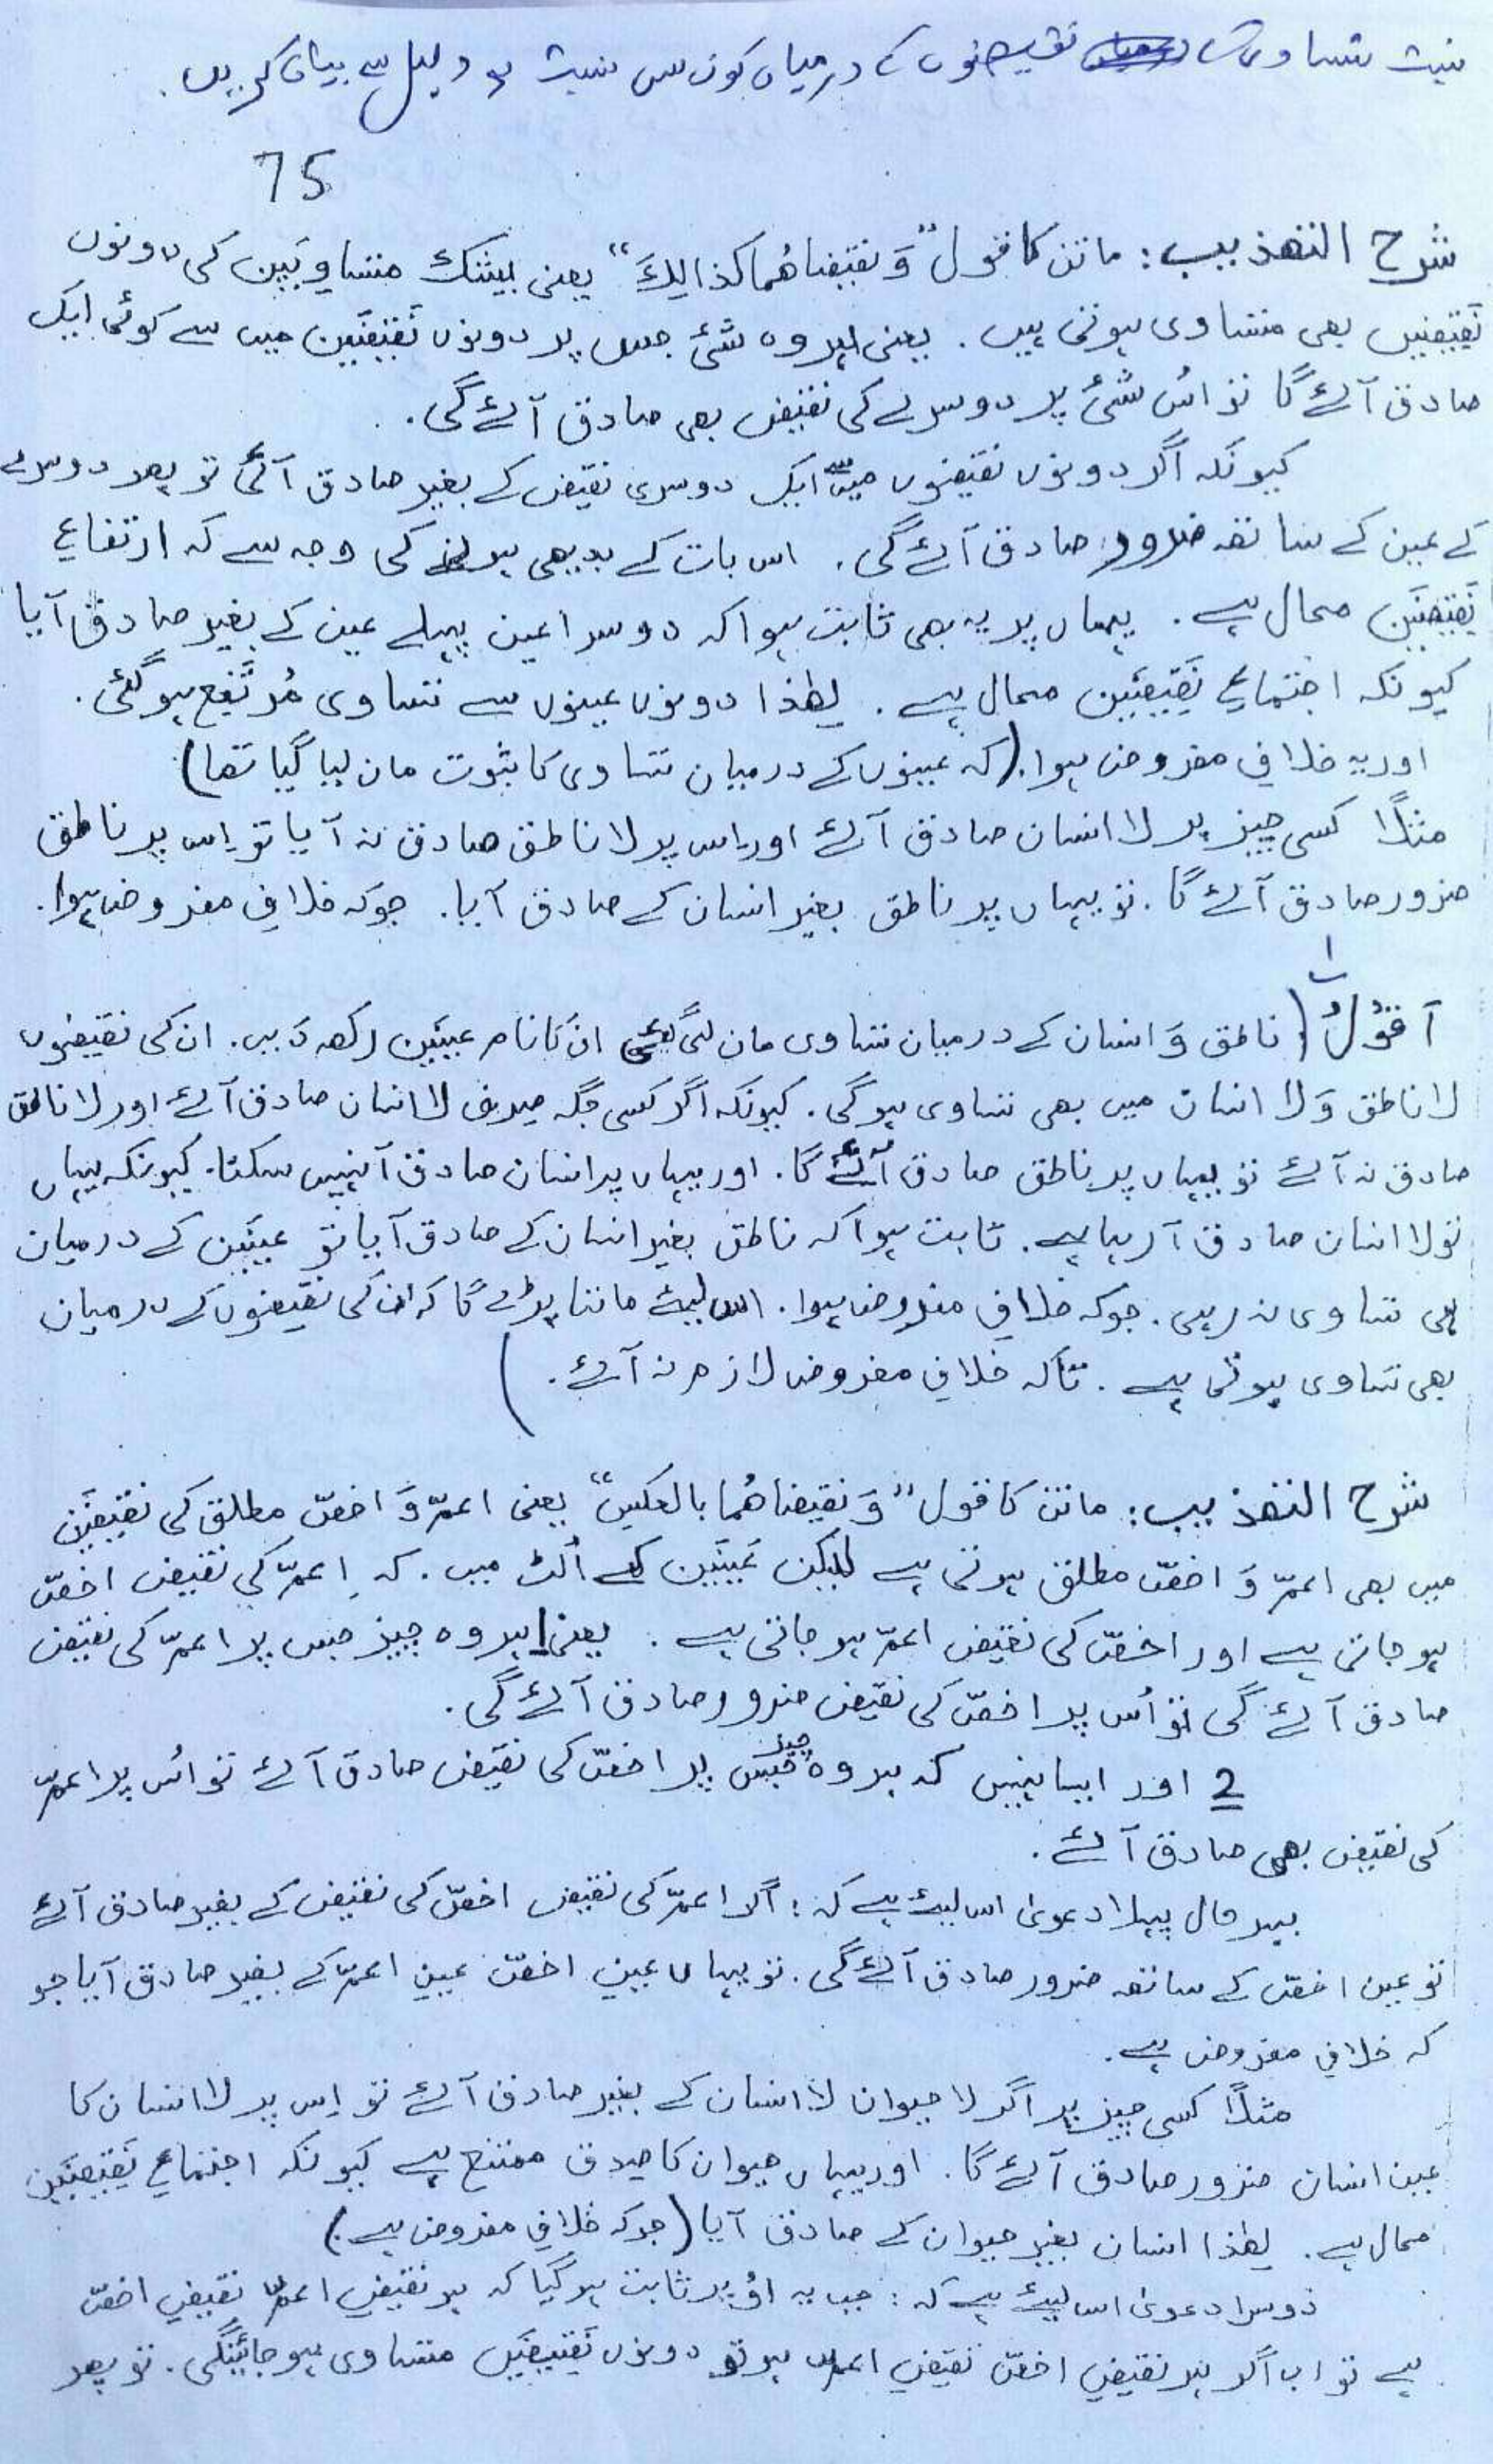 نسبت تساوی کی نقیضوں کے درمیان کون سی نسبت ہے دلیل سے بیان کریں.
75
شرح التھذیب: ماتن کا قول "وَ نقیضاھُما کذالِكَ" یعنی بیشک متساویَین کی دونوں
نَقِیضَیں بھی متساوی ہوتی ہیں. یعنی ہر وہ شئ جس پر دونوں نَقِیضَین میں سے کوئی ایک
صادق آئے گا تو اُس شئ پر دوسرے کی نقیض بھی صادق آئے گی.
کیونکہ اگر دونوں نقیضوں میں سے ایک دوسری نقیض کے بغیر صادق آئی تو پھر دوسرے
کے عین کے ساتھ ضرور صادق آئے گی. اس بات کے بدیھی ہونے کی وجہ سے کہ ارتفاعِ
نَقِیضَین محال ہے. یہاں پر یہ بھی ثابت ہوا کہ دوسرا عین پہلے عین کے بغیر صادق آیا
کیونکہ اجتماعِ نَقِیضَین محال ہے. لھذا دونوں عینوں سے تساوی مُرتَفِع ہو گئی.
اور یہ خلافِ مفروض ہوا. (کہ عینوں کے درمیان تساوی کا ثبوت مان لیا گیا تھا)
مثلًا کسی چیز پر لا انسان صادق آئے اور اس پر لا ناطق صادق نہ آیا تو اِس پر ناطق
ضرور صادق آئے گا. تو یہاں پر ناطق بغیر انسان کے صادق آیا. جو کہ خلافِ مفروض ہوا.
أ قُوْلُ (ناطق وَ انسان کے درمیان تساوی مان لی گئی ان کا نام عینَین رکھ دَیں. ان کی نقیضوں
لا ناطق وَ لا انسان میں بھی تساوی ہو گی. کیونکہ اگر کسی جگہ صِرف لا انسان صادق آئے اور لا ناطق
صادق نہ آئے تو یہاں پر ناطق صادق آئے گا. اور یہاں پر انسان صادق آ نہیں سکتا. کیونکہ یہاں
تو لا انسان صادق آ رہا ہے. ثابت ہوا کہ ناطق بغیر انسان کے صادق آیا تو عینَین کے درمیان
ہی تساوی نہ رہی. جو کہ خلافِ مفروض ہوا. اس لیئے ماننا پڑے گا کہ ان کی نقیضوں کے درمیان
بھی تساوی ہوتی ہے. تاکہ خلافِ مفروض لازم نہ آئے.)
شرح التھذیب: ماتن کا قول "وَ نقیضاھُما بالعکسِ" یعنی اعمّ وَ اخصّ مطلق کی نقیضَین
میں بھی اعمّ وَ اخصّ مطلق ہوتی ہے لیکن عَینَین کے اُلٹ میں. کہ اعمّ کی نقیض اخصّ
ہو جاتی ہے اور اخصّ کی نقیض اعمّ ہو جاتی ہے. یعنی 1 ہر وہ چیز جس پر اعمّ کی نقیض
صادق آئے گی تو اُس پر اخصّ کی نقیض ضرور صادق آئے گی.
2 اور ایسا نہیں کہ ہر وہ چیز جس پر اخصّ کی نقیض صادق آئے تو اُس پر اعمّ
کی نقیض بھی صادق آئے.
بہر حال پہلا دعویٰ اس لیئے ہے کہ: اگر اعمّ کی نقیض اخصّ کی نقیض کے بغیر صادق آئے
تو عین اخصّ کے ساتھ ضرور صادق آئے گی. تو یہاں عینِ اخصّ عینِ اعمّ کے بغیر صادق آیا جو
کہ خلافِ مفروض ہے.
مثلًا کسی چیز پر اگر لا حیوان لا انسان کے بغیر صادق آئے تو اِس پر لا انسان کا
عین انسان ضرور صادق آئے گا. اور یہاں حیوان کا صِدق ممتنع ہے کیونکہ اجتماعِ نَقِیضَین
محال ہے. لھذا انسان بغیر حیوان کے صادق آیا (جو کہ خلافِ مفروض ہے.)
دوسرا دعویٰ اس لیئے ہے کہ: جب یہ اُوپر ثابت ہو گیا کہ ہر نقیضِ اعمّ نقیضِ اخصّ
ہے تو اب اگر ہر نقیضِ اخصّ نقیضِ اعمّ ہو تو دونوں نَقِیضَیں متساوی ہو جائینگی. تو پھر